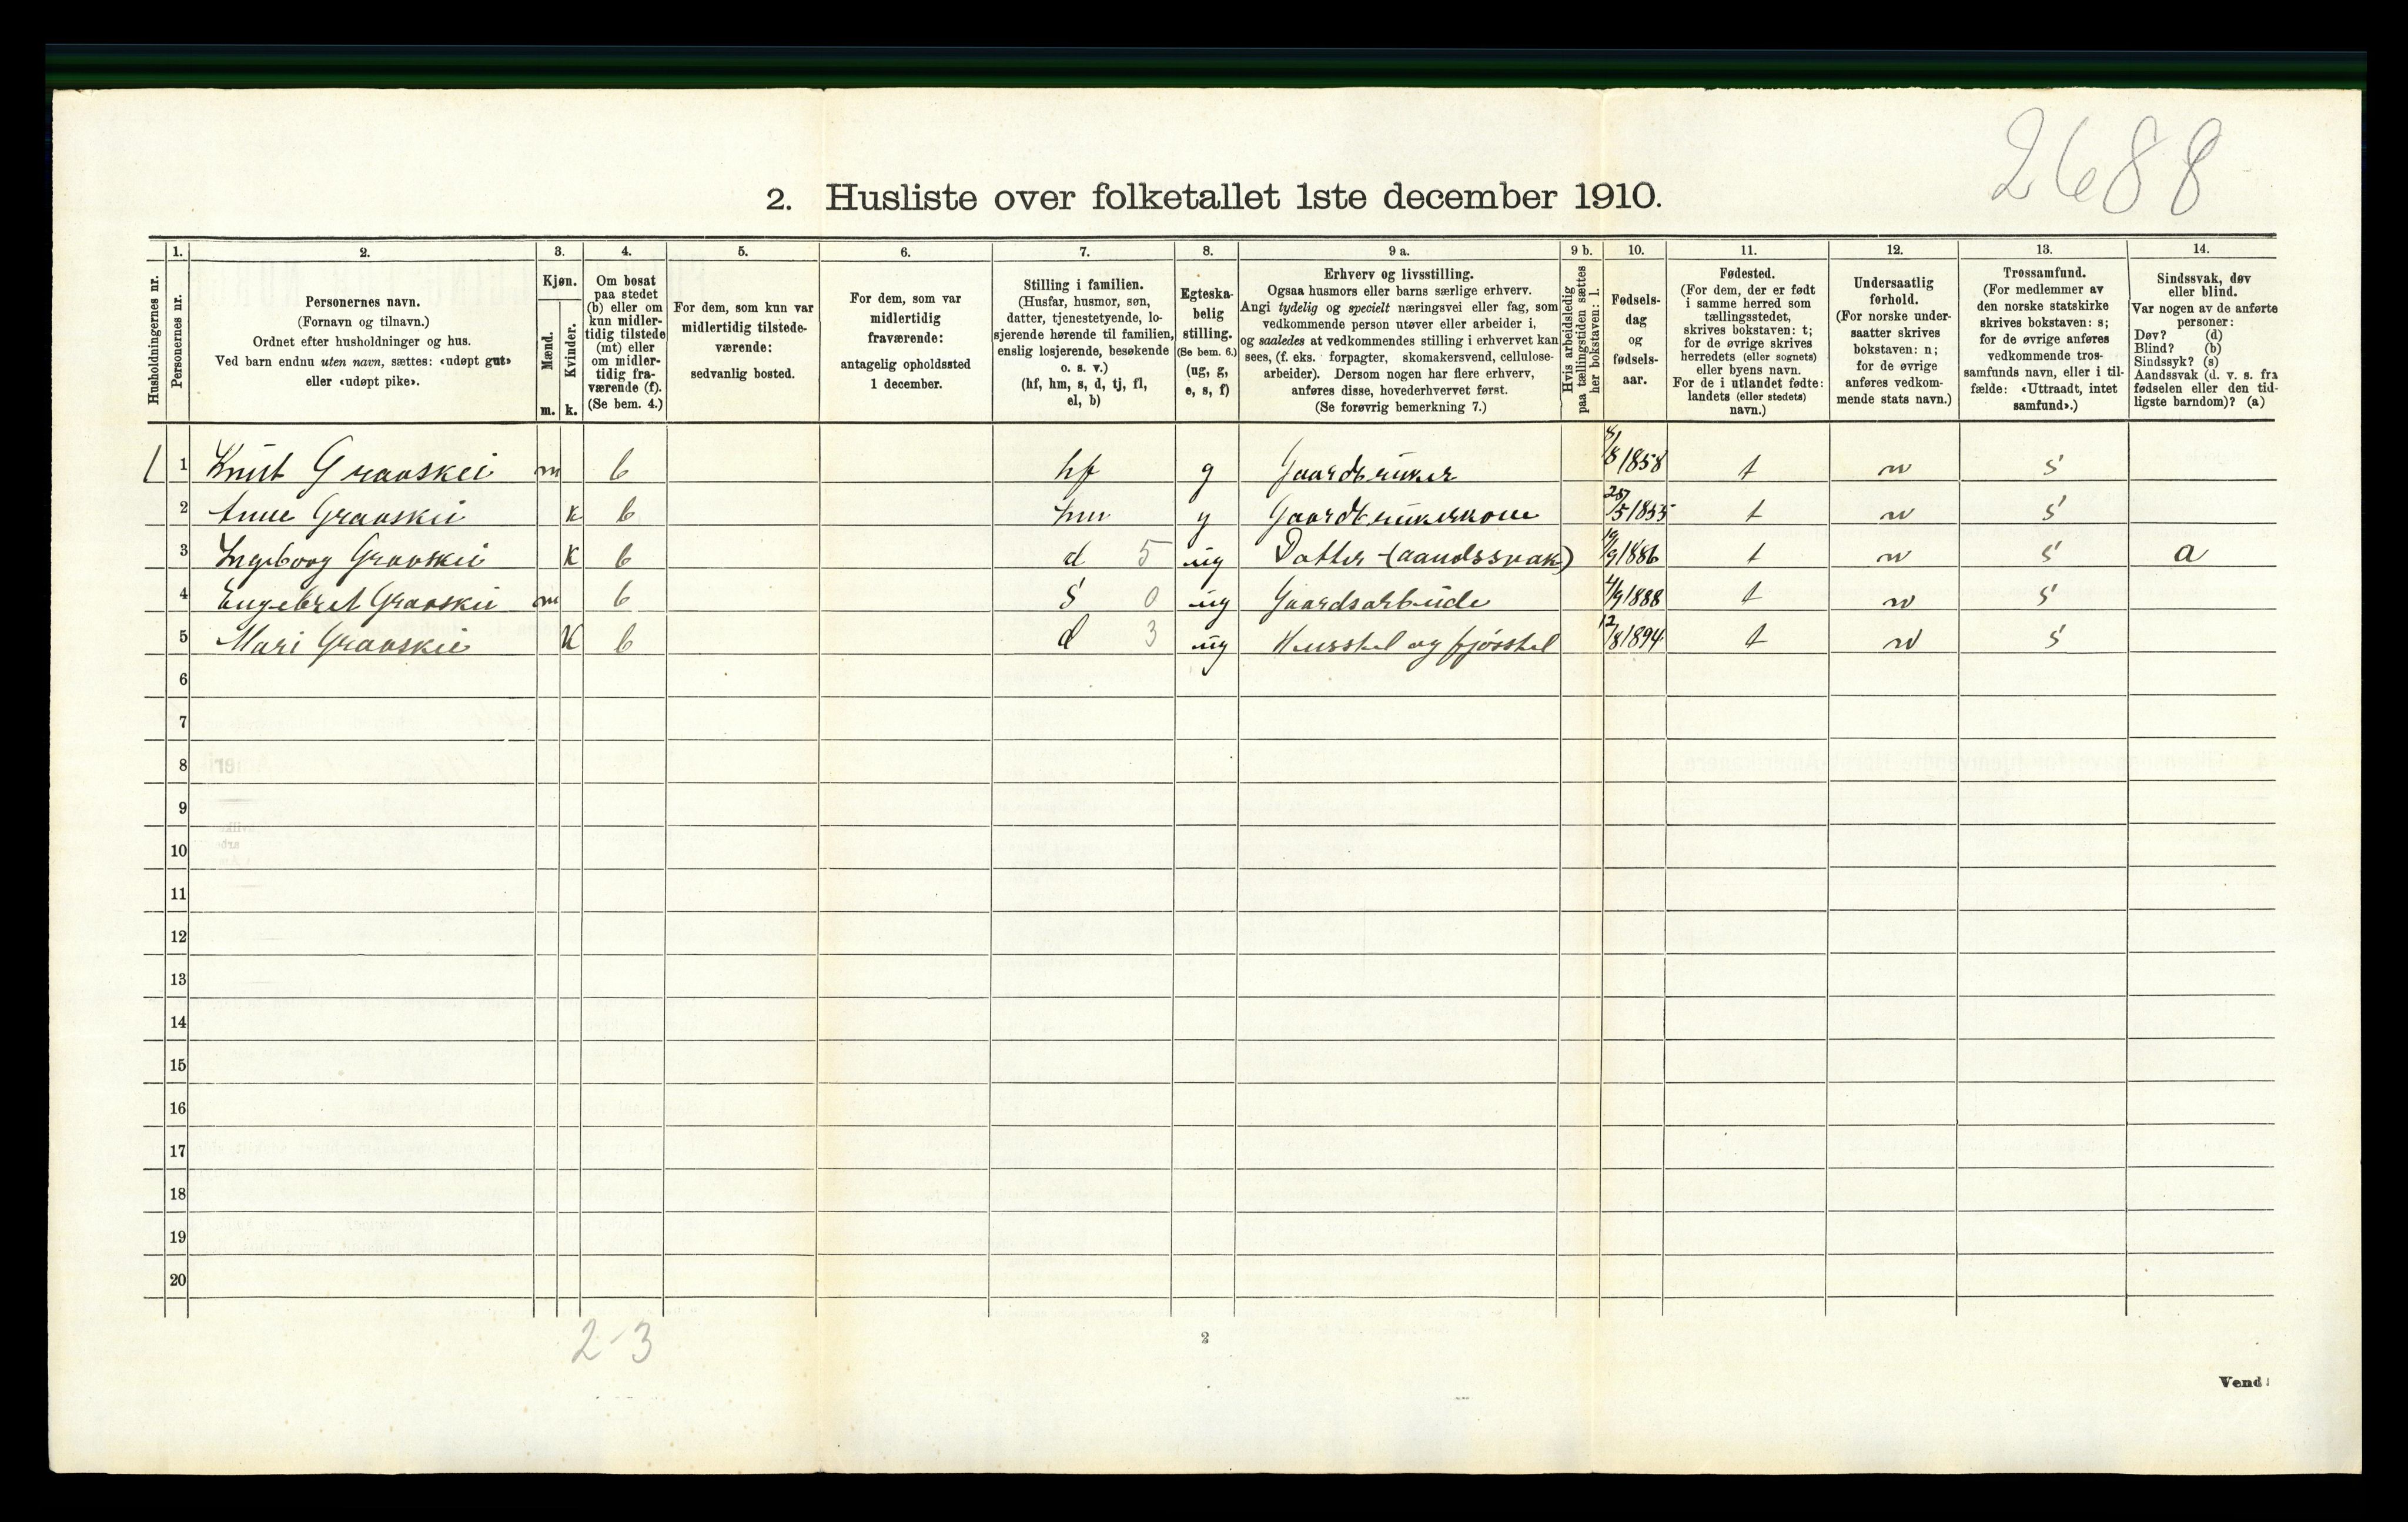 2688
2. Husliste over folketallet 1ste december 1910.
1. 2. 3. 4. 5. 6. 7. 8. 9 a. 9 b. 10. 11. 12. 13. 14.
Husholdningernes nr.
Personernes nr.
Personernes navn.
(Fornavn og tilnavn.)
Ordnet efter husholdninger og hus.
Ved barn endnu uten navn, sættes: «udøpt gut»
eller «udøpt pike».
Kjøn.
Mænd.
Kvinder.
m. k.
Om bosat
paa stedet
(b) eller om
kun midler-
tidig tilstede
(mt) eller
om midler-
tidig fra-
værende (f).
(Se bem. 4.)
For dem, som kun var
midlertidig tilstede-
værende:
sedvanlig bosted.
For dem, som var
midlertidig
fraværende:
antagelig opholdssted
1 december.
Stilling i familien.
(Husfar, husmor, søn,
datter, tjenestetyende, lo-
sjerende hørende til familien,
enslig losjerende, besøkende
o. s. v.)
(hf, hm, s, d, tj, fl,
el, b)
Egteska-
belig
stilling.
(Se bem. 6.)
(ug, g,
e, s, f)
Erhverv og livsstilling.
Ogsaa husmors eller barns særlige erhverv.
Angi tydelig og specielt næringsvei eller fag, som
vedkommende person utøver eller arbeider i,
og saaledes at vedkommendes stilling i erhvervet kan
sees, (f. eks. forpagter, skomakersvend, cellulose-
arbeider). Dersom nogen har flere erhverv,
anføres disse, hovederhvervet først.
(Se forøvrig bemerkning 7.)
Hvis arbeidsledig
paa tællingstiden sættes
her bokstaven: l.
Fødsels-
dag
og
fødsels-
aar.
Fødested.
(For dem, der er født
i samme herred som
tællingsstedet,
skrives bokstaven: t;
for de øvrige skrives
herredets (eller sognets)
eller byens navn.
For de i utlandet fødte:
landets (eller stedets)
navn.)
Undersaatlig
forhold.
(For norske under-
saatter skrives
bokstaven: n;
for de øvrige
anføres vedkom-
mende stats navn.)
Trossamfund.
(For medlemmer av
den norske statskirke
skrives bokstaven: s;
for de øvrige anføres
vedkommende tros-
samfunds navn, eller i til-
fælde: «Uttraadt, intet
samfund».)
Sindssvak, døv
eller blind.
Var nogen av de anførte
personer:
Døv? (d)
Blind? (b)
Sindssyk? (s)
Aandssvak (d. v. s. fra
fødselen eller den tid-
ligste barndom)? (a)
1 1 Knut Graaskei m b hf g Gaardbruker 8/8 1858 t n s
2 Anne Graaskei k b hm g Gaardbrukerkone 25/5 1855 t n s
3 Ingeborg Graaskei k b d 5 ug Datter (aandssvak) 19/9 1886 t n s a
4 Engebret Graaskei m b s 0 ug Gaardsarbeide 4/9 1888 t n s
5 Mari Graaskei k b d 3 ug Husstel og fjösstel 12/8 1894 t n s
6
7
8
9
10
11
12
13
14
15
16
17
18
19
20
2-3
2
Vend!